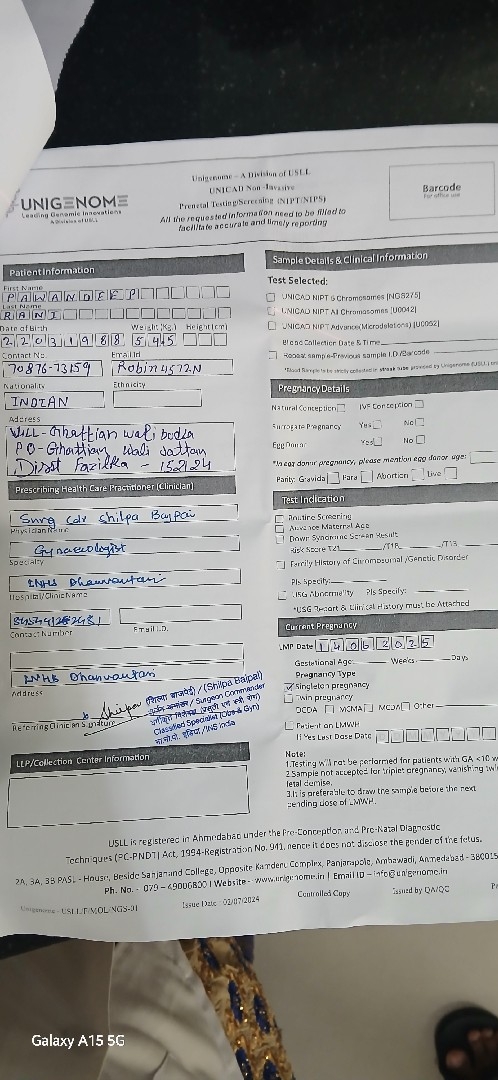 UNIGENOME
Leading Genomic Innovations
A Division of USLL
Unigenome - A Division of USLL
UNICAD Non-Invasive
Prenatal Testing/Screening (NIPT/NIPS)
All the requested information need to be filled to
facilitate accurate and timely reporting
Barcode
For office use
Patient Information
First Name
PAWANDEEP
Last Name
RANI
Date of Birth Weight (Kg) Height (cm)
22031988 54.5
Contact No. Email Id
70876-73159 Robin4572N
Nationality Ethnicity
INDIAN
Address
VILL- Ghattian wali bodla
PO- Ghattian Wali Jattan
Disst Fazilka - 152124
Prescribing Health Care Practitioner (Clinician)
Surg Cdr Shilpa Bajpai
Physician Name
Gynaecologist
Specialty
INHS Dhanvantari
Hospital/Clinic Name
Contact Number Email I.D.
INHS Dhanvantari
Address
Shilpa
Referring Clinician Signature
(शिल्पा बाजपेई) / (Shilpa Bajpai)
/ Surgeon Commander
Classified Specialist (Obs & Gyn)
/ INS India
LLP/Collection Center Information
Sample Details & Clinical Information
Test Selected:
UNICAD NIPT 5 Chromosomes [NGS275]
UNICAD NIPT All Chromosomes [U0042]
UNICAD NIPT Advance(Microdeletions) [U0052]
Blood Collection Date & Time
Repeat sample-Previous sample I.D/Barcode
*Blood Sample to be strictly collected in streck tube provided by Unigenome (USLL)
Pregnancy Details
Natural Conception IVF Conception
Surrogate Pregnancy Yes No
Egg Donor Yes No
*In egg donor pregnancy, please mention egg donor age:
Parity: Gravida Para Abortion Live
Test Indication
Routine Screening
Advance Maternal Age
Down Syndrome Screen Result
Risk Score T21 /T18 /T13
Family History of Chromosomal /Genetic Disorder
Pls Specify:
USG Abnormality Pls Specify:
*USG Report & Clinical History must be Attached
Current Pregnancy
LMP Date 14062025
Gestational Age: Weeks Days
Pregnancy Type
Singleton pregnancy
Twin pregnancy
DCDA MCMA MCDA Other
Patient on LMWH
If Yes Last Dose Date
Note:
1.Testing will not be performed for patients with GA <10 w
2.Sample not accepted for triplet pregnancy, vanishing twin
fetal demise.
3.It is preferable to draw the sample before the next
pending dose of LMWH.
USLL is registered in Ahmedabad under the Pre-Conception and Pre-Natal Diagnostic
Techniques (PC-PNDT) Act, 1994-Registration No. 941, hence it does not disclose the gender of the fetus.
2A, 3A, 3B PASL - House, Beside Sanjanand College, Opposite Kamdenu Complex, Panjarapole, Ambawadi, Ahmedabad - 380015
Ph. No. - 079 - 49006800 | Website - www.unigenome.in | Email ID - info@unigenome.in
Unigenome - USLL/F/MOL/NGS-01 Issue Date - 02/07/2024 Controlled Copy Issued by QA/QC
Galaxy A15 5G